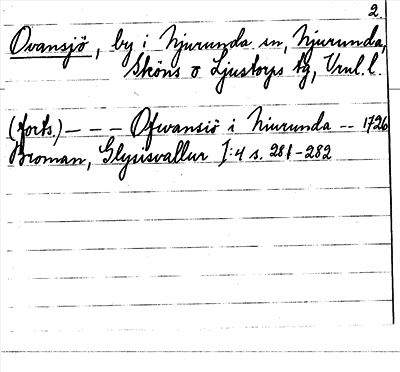 2.
Ovansjö, by i Njurunda sn, Njurunda,
Sköns o Ljustorps tg, Vnl. l.
(forts.) — — — Ofwansiö i Niurunda -- 1726
Broman, Glysisvallur I:4 s. 281-282